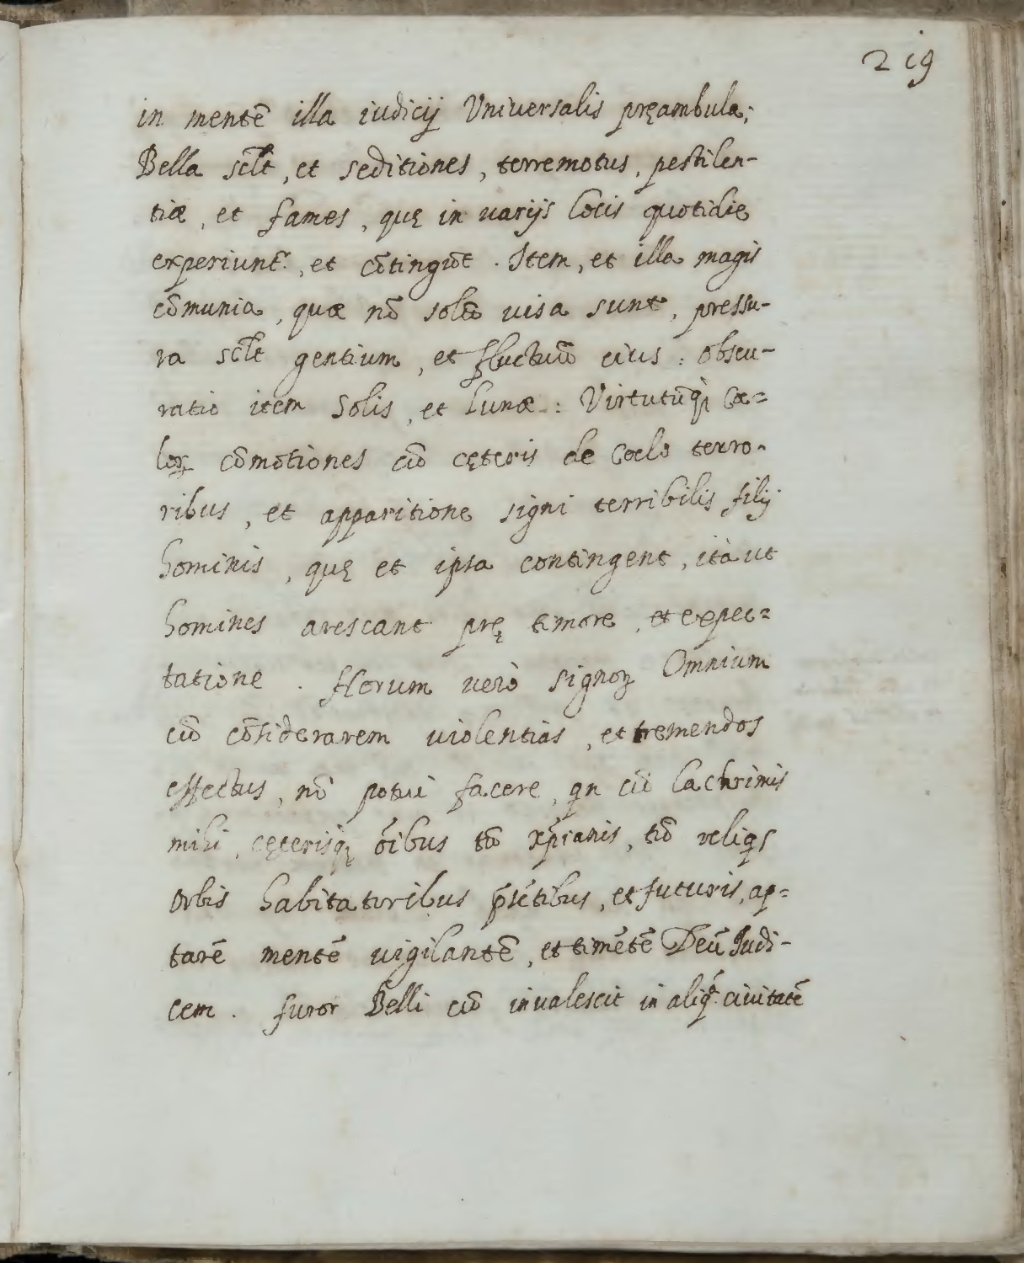 2 i9
in mentē illa iudicij Vniuersalis pręambula;
Bella sclt̃, et seditiones, terremotus, pestilen-
tiæ, et fames, quę in varijs locis quotidie
experiunt̃., et cōtingūt. Item, et illa magis
cōmunia, quæ nō solū visa sunt, pressu-
ra sclt̃ gentium, et fluctuū eius: obscu-
ratio item Solis, et Lunæ: Virtutūq̨ Cæ=
loꝝ cōmotiones cū cęteris de Coelo terro-
ribus, et apparitione signi terribilis filij
hominis, quę et ipsa contingent, ità ut
homines arescant prę timore, et expec=
tatione. Horum verò signoꝝ Omnium
cū cōsiderarem violentias, et tremendos
effectus, nō potui facere, qn cū lachrimis
mihi, cęterisq̨ oībus tū xp̄ianis, tū reliqs
orbis habitatoribus p̄sētibus, et futuris, ap=
tarē mentē vigilantē, et timētē Deū Iudi-
cem. furor Belli cū inualescit in aliq̃. ciuitatē